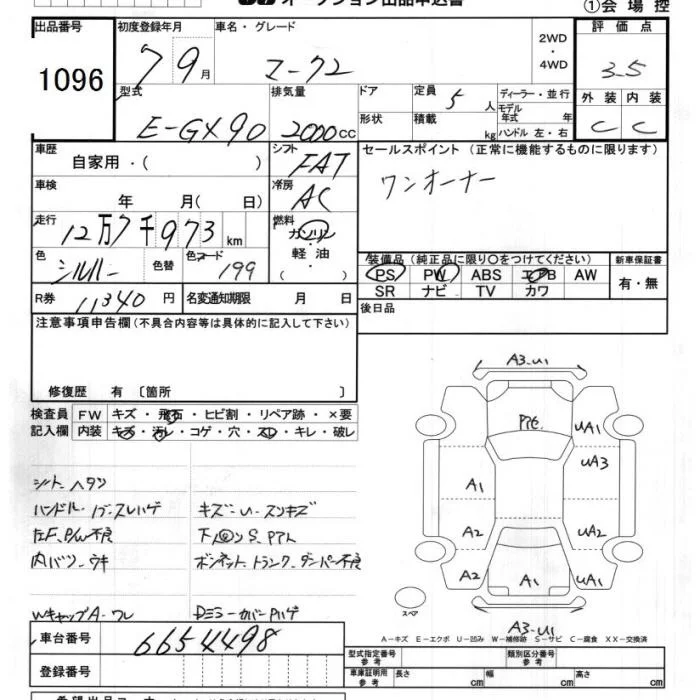 オークション出品申込書 ①会場控
出品番号 1096
初度登録年月 7 9月
車名・グレード マークⅡ
2WD・4WD
評価点 3.5
外装 C 内装 C
型式 E-GX90
排気量 2000cc
ドア
形状
定員 5人
積載 kg
ディーラー・並行
モデル年式 年
ハンドル 左・右
車歴 自家用・( )
シフト FAT
車検 年 月( 日)
冷房 AC
走行 12万7千973km
燃料 ガソリン・軽油・( )
色 シルバー 色替 色コード 199
R券 11,340円 名変通知期限 月 日
セールスポイント (正常に機能するものに限ります)
ワンオーナー
装備品(純正品に限り○をつけてください)
PS PW ABS エアB AW
SR ナビ TV カワ
新車保証書 有・無
後日品
注意事項申告欄(不具合内容等は具体的に記入して下さい)
修復歴 有 〔箇所 〕
検査員記入欄
FW キズ・飛石・ヒビ割・リペア跡・×要
内装 キズ・汚レ・コゲ・穴・スレ・キレ・破レ
シート ヘタリ
ハンドル・ノブ・スレハゲ キズ・U・スリキズ
左F.P/W不良
内バリ・ウキ ボンネット トランク ダンパー不良
WキャップA・ワレ Dミラーカバー Pハゲ
A3.U1
Pイモ
UA1
UA3
A1
A2 UA2
A2 A1 UA1
スペア
A3.U1
A-キズ E-エクボ U-凹み W-補修跡 S-サビ C-腐食 XX-交換済
車台番号 6654498
登録番号
型式指定番号 参考
類別区分番号 参考
車庫証明用 参考 長さ cm 幅 cm 高さ cm